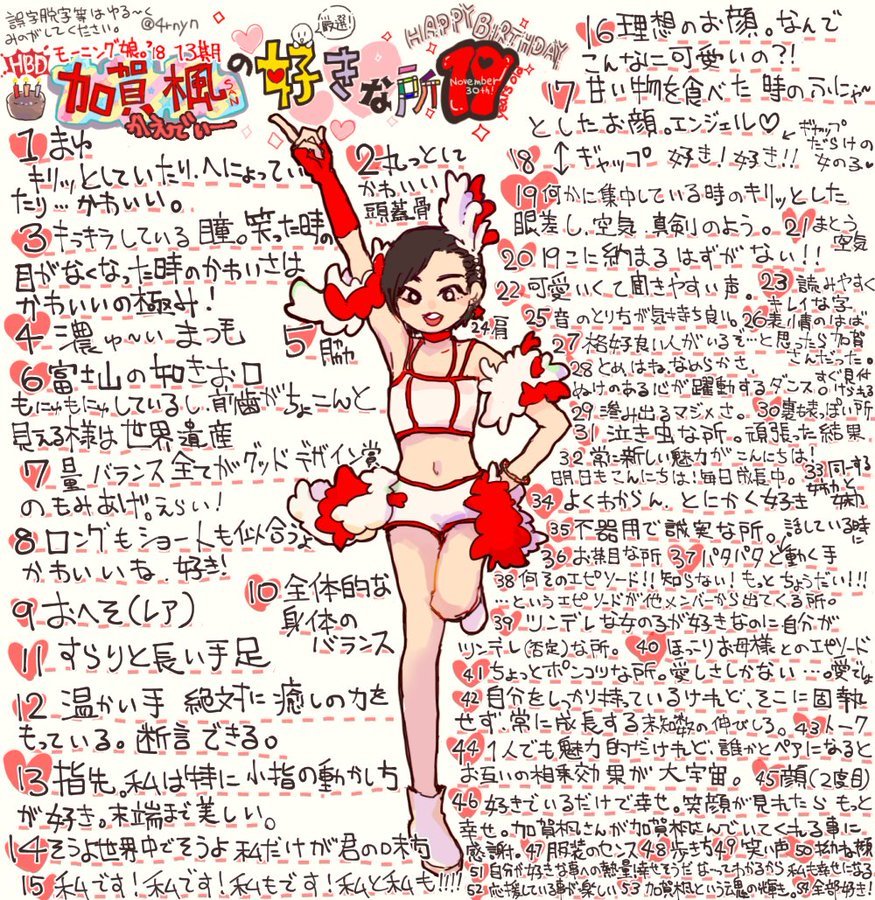 誤字脱字等はゆる〜く
みのがしてください。
@4rnyn
HBD
モーニング娘。'18 13期
加賀楓さん
かえでぃー
の好きな所
厳選!
HAPPY BIRTHDAY
19
November
30th!
years old
1 まゆ
キリッとしていたり、へにょってい
たり…かわいい。
2 丸っとして
かわいい
頭蓋骨
3 キラキラしている瞳。笑った時の
目がなくなった時のかわいさは
かわいいの極み!
4 濃ゅ〜い まつ毛
5 脇
6 富士山の如きお口
もにゅもにゅしているし、前歯がちょこんと
見える様は世界遺産
7 量 バランス全てがグッドデザイン賞
のもみあげ。えらい!
8 ロングもショートも似合うよ
かわいいね、好き!
9 おへそ(レア)
10 全体的な
身体の
バランス
11 すらりと長い手足
12 温かい手 絶対に癒しの力を
もっている。断言できる。
13 指先。私は特に小指の動かし方
が好き。末端まで美しい。
14 そうよ世界中でそうよ 私だけが君の味方
15 私です!私です!私もです!私と私も!!!!
16 理想のお顔。なんで
こんなに可愛いの?!
17 甘い物を食べた時のふにゃ〜
としたお顔。エンジェル♡
18 ↕ギャップ 好き!好き!!
ギャップ
だらけの
女の子♥
19 何かに集中している時のキリッとした
眼差し、空気、真剣のよう。
20 19こに納まるはずがない!!
21 まとう
空気
22 可愛いくて聞きやすい声。
23 読みやすく
キレイな字。
24 肩
25 音のとり方が気持ち良い。
26 表情のすば
27 格好良い人がいるぞ…と思ったら加賀
さんだった。
28 とめ、はね、なめらかさ、
ぬけのある心が躍動するダンス
すぐ見付
けられる
29 滲み出るマジメさ。
30 裏も表っぽい所
31 泣き虫な所。頑張った結果
32 常に新しい魅力がこんにちは!
明日もこんにちは!毎日成長中。
34 よくわからん、とにかく好き
35 不器用で誠実な所。
話している時に
36 お茶目な所
37 パタパタと動く手
38 何そのエピソード!!知らない!もっとちょうだい!!!
…というエピソードが他メンバーから出てくる所。
39 ツンデレな女の子が好きなのに自分が
ツンデレ(否定)な所。
40 ほっこりお母様とのエピソード
41 ちょっとポンコツな所。愛しさしかない…。愛でしょ
42 自分をしっかり持っているけれど、そこに固執
せず、常に成長する未知数の伸びしろ。
43 トーク
44 1人でも魅力的だけれど、誰かとペアになると
お互いの相乗効果が大宇宙。
45 顔(2度目)
46 好きでいるだけで幸せ。笑顔が見れたらもっと
幸せ。加賀楓さんが加賀楓さんでいてくれる事に
感謝。
47 服装のセンス
48 歩き方
49 笑い声
50 お幼な顔
51 自分が好きな事への熱量!幸せそうだなってわかるから私も幸せになる
52 応援している事が楽しい
53 加賀楓という魂の輝き。
54 全部好き!